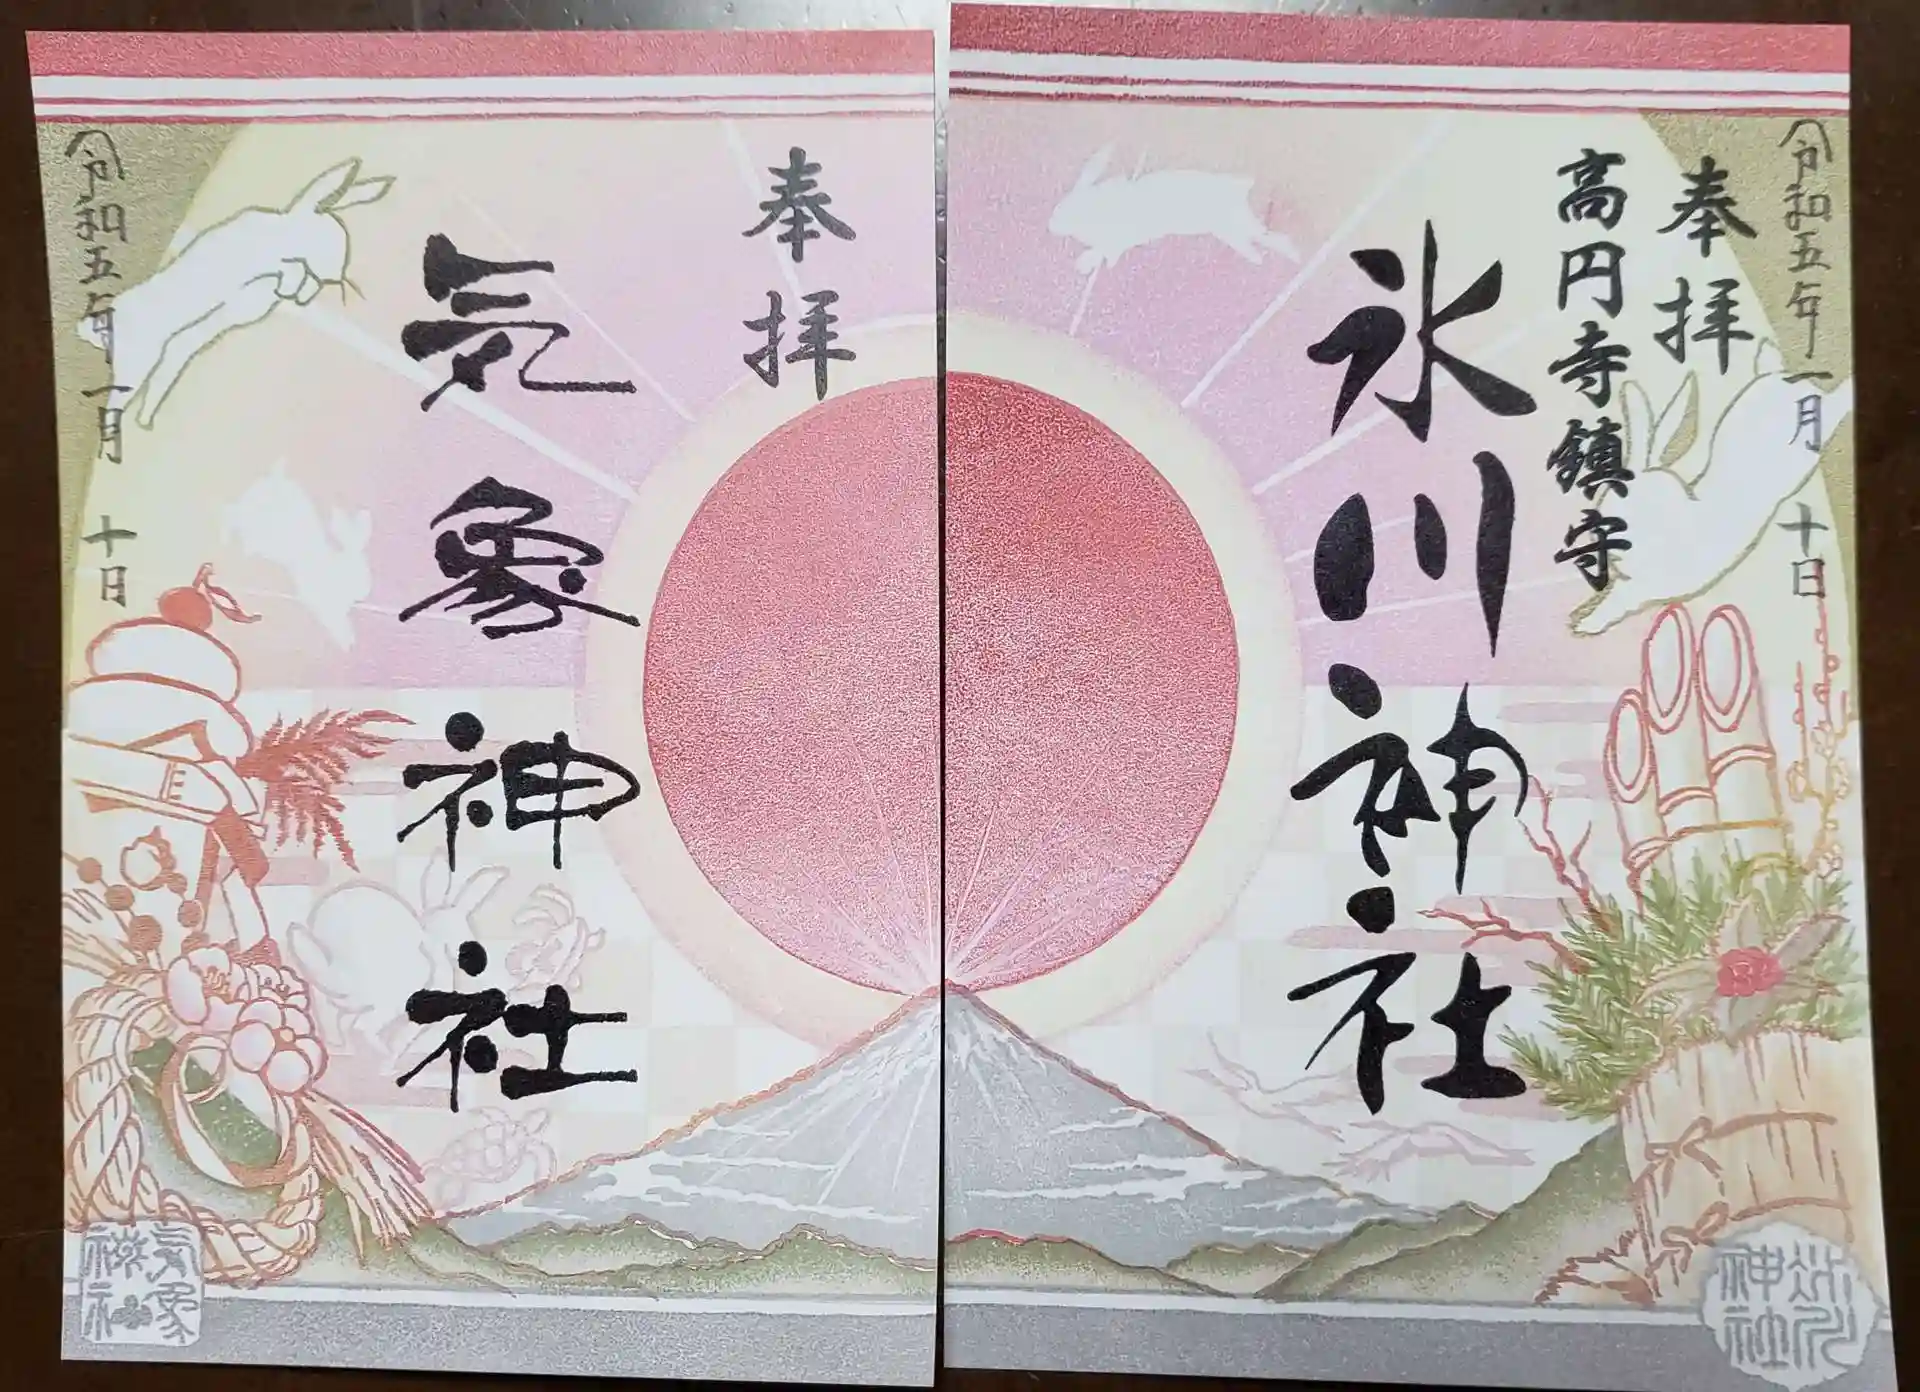 令和五年一月十日
奉拝
高円寺鎮守
氷川神社
氷川
神社
奉拝
気象神社
令和五年一月十日
気象
神社